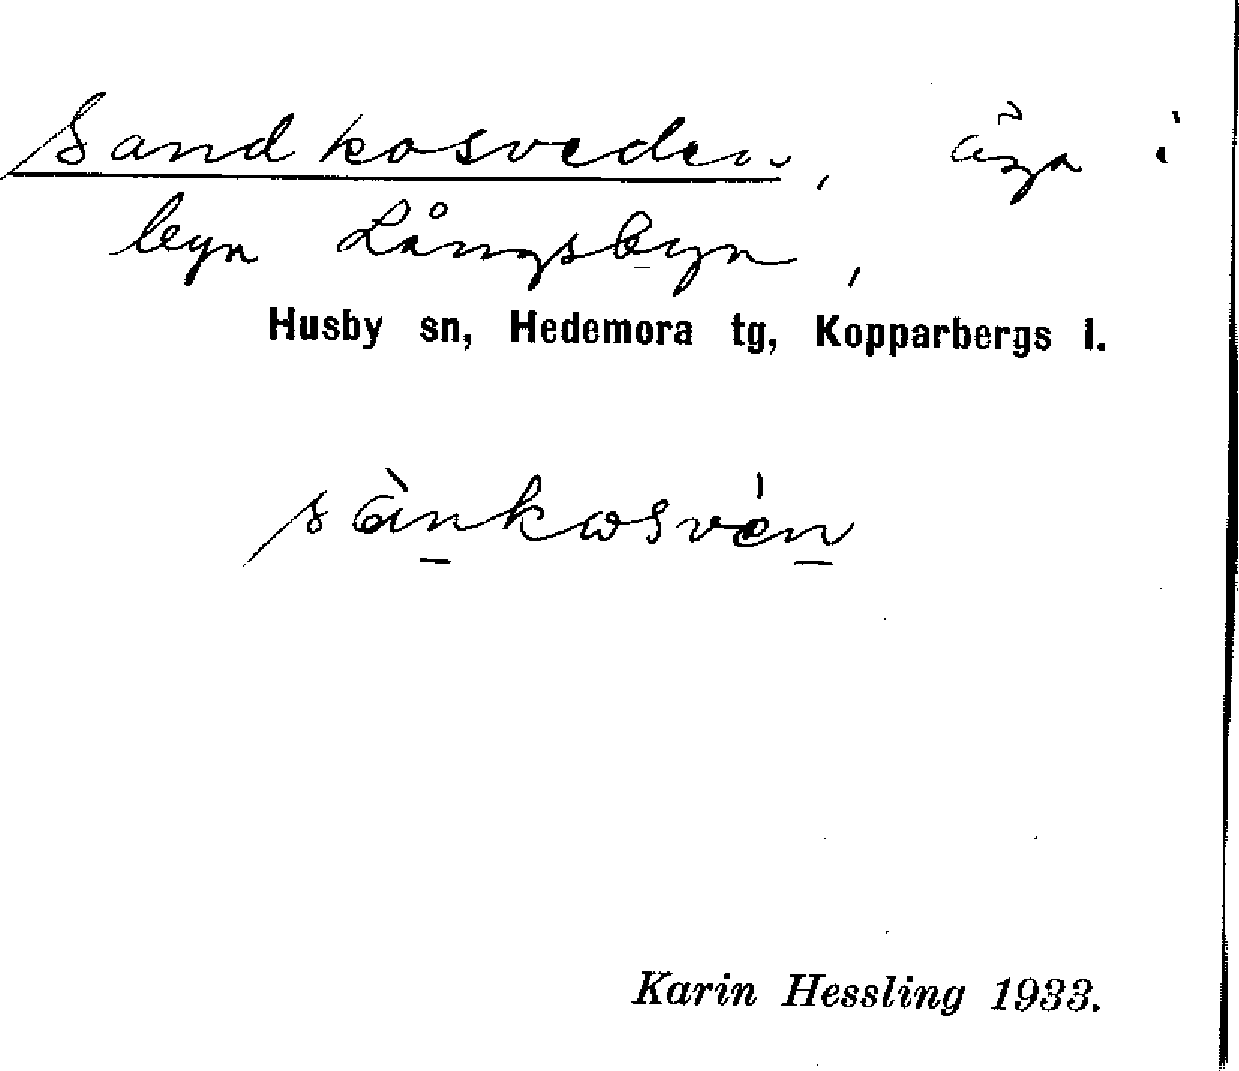 Sandkosveden, äga i
byn Långsbyn,
Husby sn, Hedemora tg, Kopparbergs l.
sànkosvén
Karin Hessling 1933.